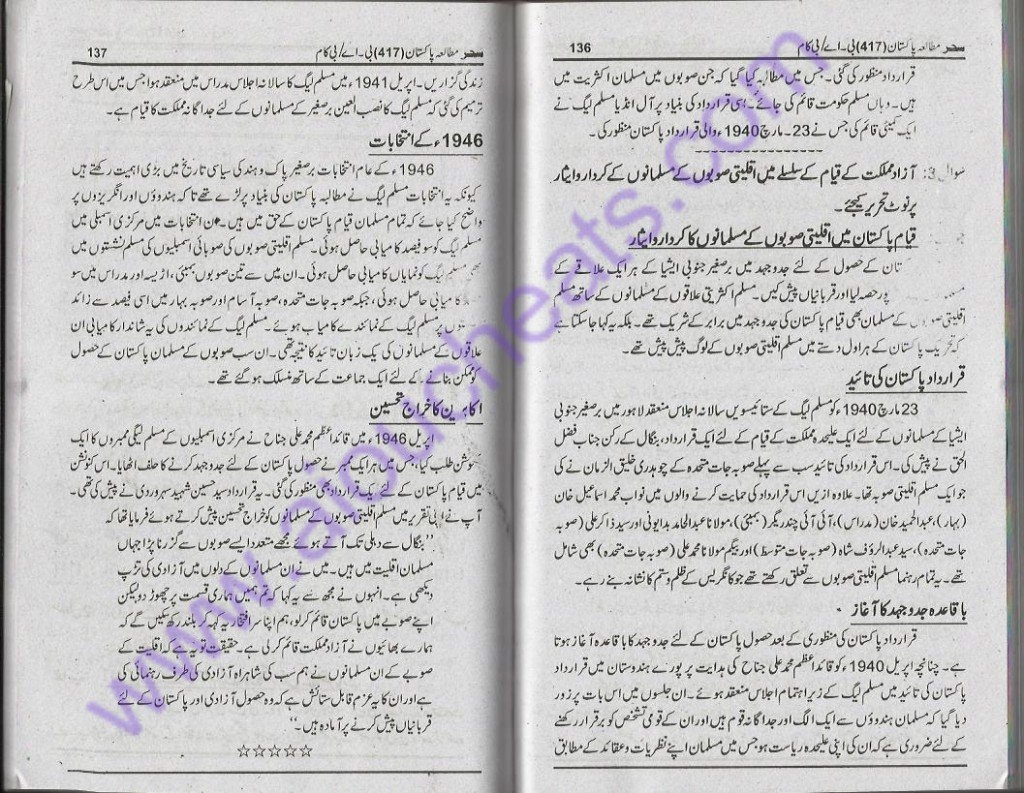 136 سحر مطالعہ پاکستان (417) بی۔ اے/بی کام
قرارداد منظور کی گئی۔ جس میں مطالبہ کیا گیا کہ جن صوبوں میں مسلمان اکثریت میں
ہیں۔ وہاں مسلم حکومت قائم کی جائے۔ اسی قرارداد کی بنیاد پر آل انڈیا مسلم لیگ نے
ایک کمیٹی قائم کی جس نے 23۔ مارچ 1940ء والی قرارداد پاکستان منظور کی۔
سوال 3: آزاد مملکت کے قیام کے سلسلے میں اقلیتی صوبوں کے مسلمانوں کے کردار و ایثار
پر نوٹ تحریر کیجئے۔
قیام پاکستان میں اقلیتی صوبوں کے مسلمانوں کا کردار و ایثار
کے حصول کے لئے جدوجہد میں برصغیر جنوبی ایشیا کے ہر ایک علاقے کے
پور حصہ لیا اور قربانیاں پیش کیں۔ مسلم اکثریتی علاقوں کے مسلمانوں کے ساتھ مسلم
اقلیتی صوبوں کے مسلمان بھی قیام پاکستان کی جدوجہد میں برابر کے شریک تھے۔ بلکہ یہ کہا جا سکتا ہے
کہ تحریک پاکستان کے ہراول دستے میں مسلم اقلیتی صوبوں کے لوگ پیش پیش تھے۔
قرارداد پاکستان کی تائید
23 مارچ 1940ء کو مسلم لیگ کے ستائیسویں سالانہ اجلاس منعقد لاہور میں برصغیر جنوبی
ایشیا کے مسلمانوں کے لئے ایک علیحدہ مملکت کے قیام کے لئے ایک قرارداد، بنگال کے رکن جناب فضل
الحق نے پیش کی۔ اس قرارداد کی تائید سب سے پہلے صوبہ جات متحدہ کے چوہدری خلیق الزمان نے کی
جو ایک مسلم اقلیتی صوبہ تھا۔ علاوہ ازیں اس قرارداد کی حمایت کرنے والوں میں نواب محمد اسماعیل خان
(بہار)، عبدالحمید خان (مدراس)، آئی آئی چندریگر (بمبئی)، مولانا عبدالحامد بدایونی اور سید ذاکر علی (صوبہ
جات متحدہ)، سید عبدالرؤف شاہ (صوبہ جات متوسط) اور بیگم مولانا محمد علی (صوبہ جات متحدہ) بھی شامل
تھے۔ یہ تمام رہنما مسلم اقلیتی صوبوں سے تعلق رکھتے تھے جو کانگریس کے ظلم و ستم کا نشانہ بنے رہے۔
باقاعدہ جدوجہد کا آغاز
قرارداد پاکستان کی منظوری کے بعد حصول پاکستان کے لئے جدوجہد کا باقاعدہ آغاز ہوتا
ہے۔ چنانچہ اپریل 1940ء کو قائداعظم محمد علی جناح کی ہدایت پر پورے ہندوستان میں قرارداد
پاکستان کی تائید میں مسلم لیگ کے زیر اہتمام اجلاس منعقد ہوئے۔ ان جلسوں میں اس بات پر زور
دیا گیا کہ مسلمان ہندوؤں سے ایک الگ اور جداگانہ قوم ہیں اور ان کے قومی تشخص کو برقرار رکھنے
کے لئے ضروری ہے کہ ان کی اپنی علیحدہ ریاست ہو جس میں مسلمان اپنے نظریات و عقائد کے مطابق
137 سحر مطالعہ پاکستان (417) بی۔ اے/بی کام
زندگی گزاریں۔ اپریل 1941ء میں مسلم لیگ کا سالانہ اجلاس مدراس میں منعقد ہوا جس میں اس طرح
ترمیم کی گئی کہ مسلم لیگ کا نصب العین برصغیر کے مسلمانوں کے لئے جداگانہ مملکت کا قیام ہے۔
1946ء کے انتخابات
1946ء کے عام انتخابات برصغیر پاک و ہند کی سیاسی تاریخ میں بڑی اہمیت رکھتے ہیں
کیونکہ یہ انتخابات مسلم لیگ نے مطالبہ پاکستان کی بنیاد پر لڑے تھے تاکہ ہندوؤں اور انگریزوں پر
واضح کیا جائے کہ تمام مسلمان قیام پاکستان کے حق میں ہیں۔ ان انتخابات میں مرکزی اسمبلی میں
مسلم لیگ کو سو فیصد کامیابی حاصل ہوئی۔ مسلم اقلیتی صوبوں کی صوبائی اسمبلیوں کی مسلم نشستوں میں
بھی مسلم لیگ کو نمایاں کامیابی حاصل ہوئی۔ ان میں سے تین صوبوں بمبئی، اڑیسہ اور مدراس میں سو
کامیابی حاصل ہوئی، جبکہ صوبہ جات متحدہ، صوبہ آسام اور صوبہ بہار میں اسی فیصد سے زائد
پر مسلم لیگ کے نمائندے کامیاب ہوئے۔ مسلم لیگ کے نمائندوں کی یہ شاندار کامیابی ان
علاقوں کے مسلمانوں کی یک زبان تائید کا نتیجہ تھی۔ ان سب صوبوں کے مسلمان پاکستان کے حصول
کو ممکن بنانے کے لئے ایک جماعت کے ساتھ منسلک ہو گئے تھے۔
اکابرین کا خراج تحسین
اپریل 1946ء میں قائداعظم محمد علی جناح نے مرکزی اسمبلیوں کے مسلم لیگی ممبروں کا ایک
کنونشن طلب کیا، جس میں ہر ایک ممبر نے حصول پاکستان کے لئے جدوجہد کرنے کا حلف اٹھایا۔ اس کنونشن
میں قیام پاکستان کے لئے ایک قرارداد بھی منظور کی گئی۔ یہ قرارداد سید حسین شہید سہروردی نے پیش کی تھی۔
آپ نے اپنی تقریر میں مسلم اقلیتی صوبوں کے مسلمانوں کو خراج تحسین پیش کرتے ہوئے فرمایا تھا کہ
"بنگال سے دہلی تک آتے ہوئے مجھے متعدد ایسے صوبوں سے گزرنا پڑا جہاں
مسلمان اقلیت میں ہیں۔ میں نے ان مسلمانوں کے دلوں میں آزادی کی تڑپ
دیکھی ہے۔ انہوں نے مجھ سے یہ کہا کہ تم ہمیں ہماری قسمت پر چھوڑ دو لیکن
اپنے صوبے میں پاکستان قائم کر لو، ہم اپنا سر افتخار یہ کہہ کر بلند رکھ سکیں گے کہ
ہمارے بھائیوں نے آزاد مملکت قائم کر لی ہے۔ حقیقت تو یہ ہے کہ اقلیت کے
صوبے کے ان مسلمانوں نے ہم سب کی شاہراہ آزادی کی طرف رہنمائی کی
ہے اور ان کا یہ عزم قابل ستائش ہے کہ وہ حصول آزادی اور پاکستان کے لئے
قربانیاں پیش کرنے پر آمادہ ہیں۔"
☆☆☆☆☆
www.aioucheats.com